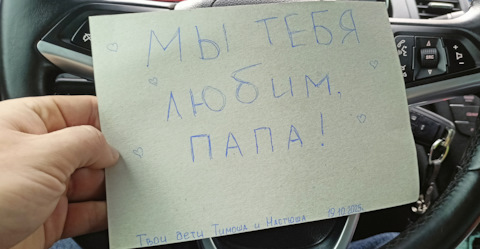 МЫ ТЕБЯ
ЛЮБИМ,
ПАПА!
Твои дети Тимоша и Настюша 19.10.2025г.